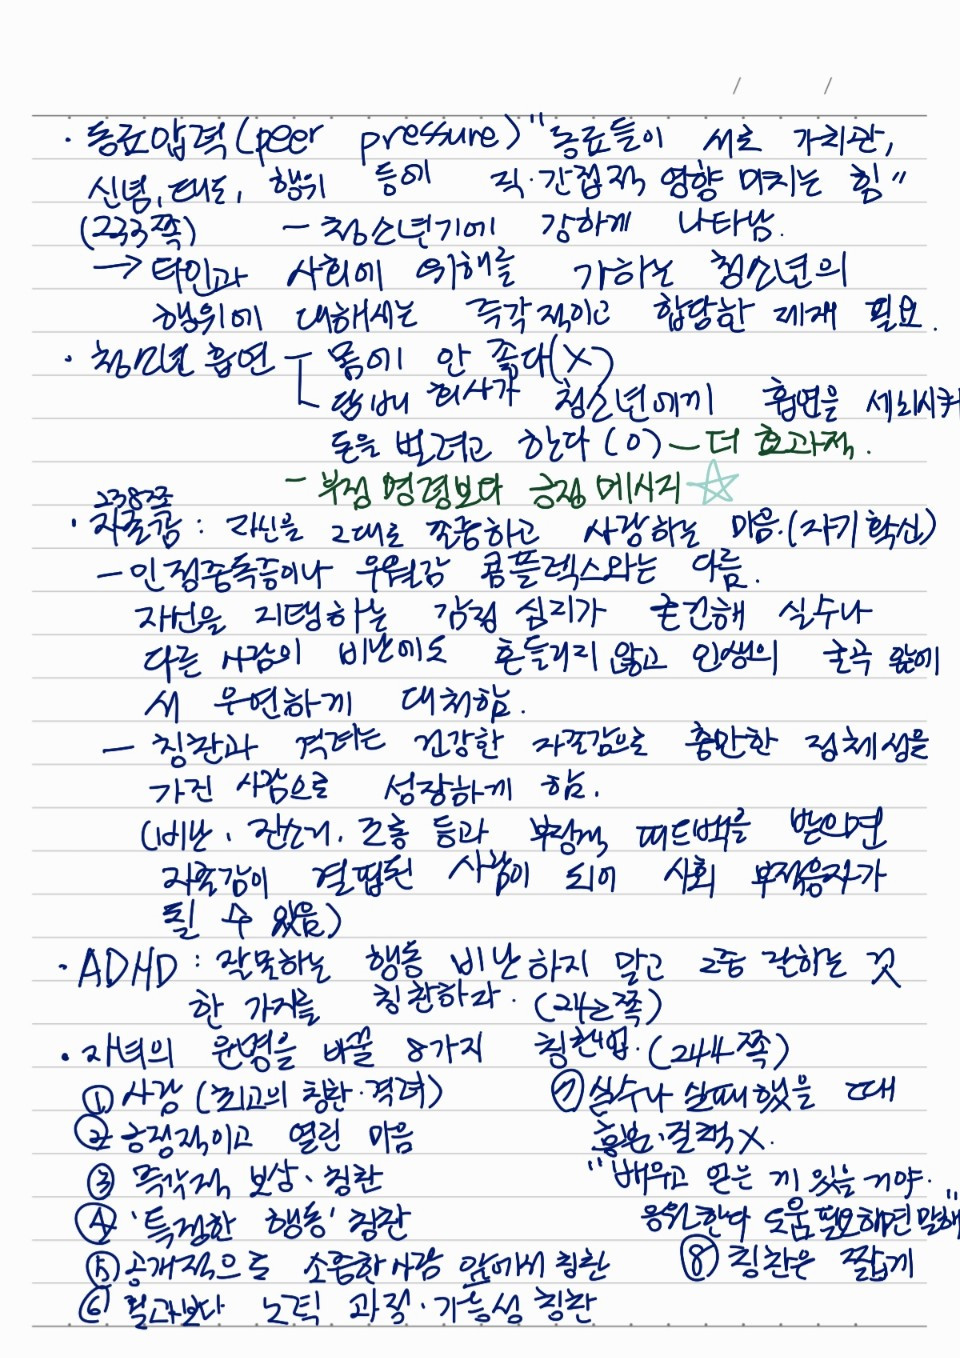 · 동료압력(peer pressure) "동료들이 서로 가치관,
신념, 태도, 행위 등에 직·간접적 영향 미치는 힘"
(233쪽) - 청소년기에 강하게 나타남.
→ 타인과 사회에 위해를 가하는 청소년의
행위에 대해서는 즉각적이고 합당한 제재 필요.
· 청소년 흡연 - 몸에 안 좋다(X)
담배 회사가 청소년에게 흡연을 세뇌시켜
돈을 벌려고 한다 (O) - 더 효과적.
- 부정 명령보다 긍정 메시지 ☆
238쪽
· 자존감 : 자신을 그대로 존중하고 사랑하는 마음.(자기확신)
- 인정중독증이나 우월감 콤플렉스와는 다름.
자신을 지탱하는 감정 심리가 온전해 실수나
다른 사람의 비난에도 흔들리지 않고 인생의 굴곡 앞에
서 우연하게 대처함.
- 칭찬과 격려는 건강한 자존감으로 충만한 정체성을
가진 사람으로 성장하게 함.
(비난, 잔소리, 조롱 등과 부정적 피드백을 받으면
자존감이 결핍된 사람이 되어 사회 부적응자가
될 수 있음)
· ADHD : 잘못하는 행동 비난하지 말고 그중 잘하는 것
한 가지를 칭찬하라. (242쪽)
· 자녀의 운명을 바꿀 8가지 칭찬법. (244쪽)
① 사랑 (최고의 칭찬·격려)
② 긍정적이고 열린 마음
③ 즉각적 보상·칭찬
④ '특정한 행동' 칭찬
⑤ 공개적으로 소중한 사람 앞에서 칭찬
⑥ 결과보다 노력 과정·가능성 칭찬
⑦ 실수나 실패했을 때
흥분·질책 X.
"배우고 얻는 게 있을 거야.
응원한다 도움 필요하면 말해"
⑧ 칭찬은 짧게